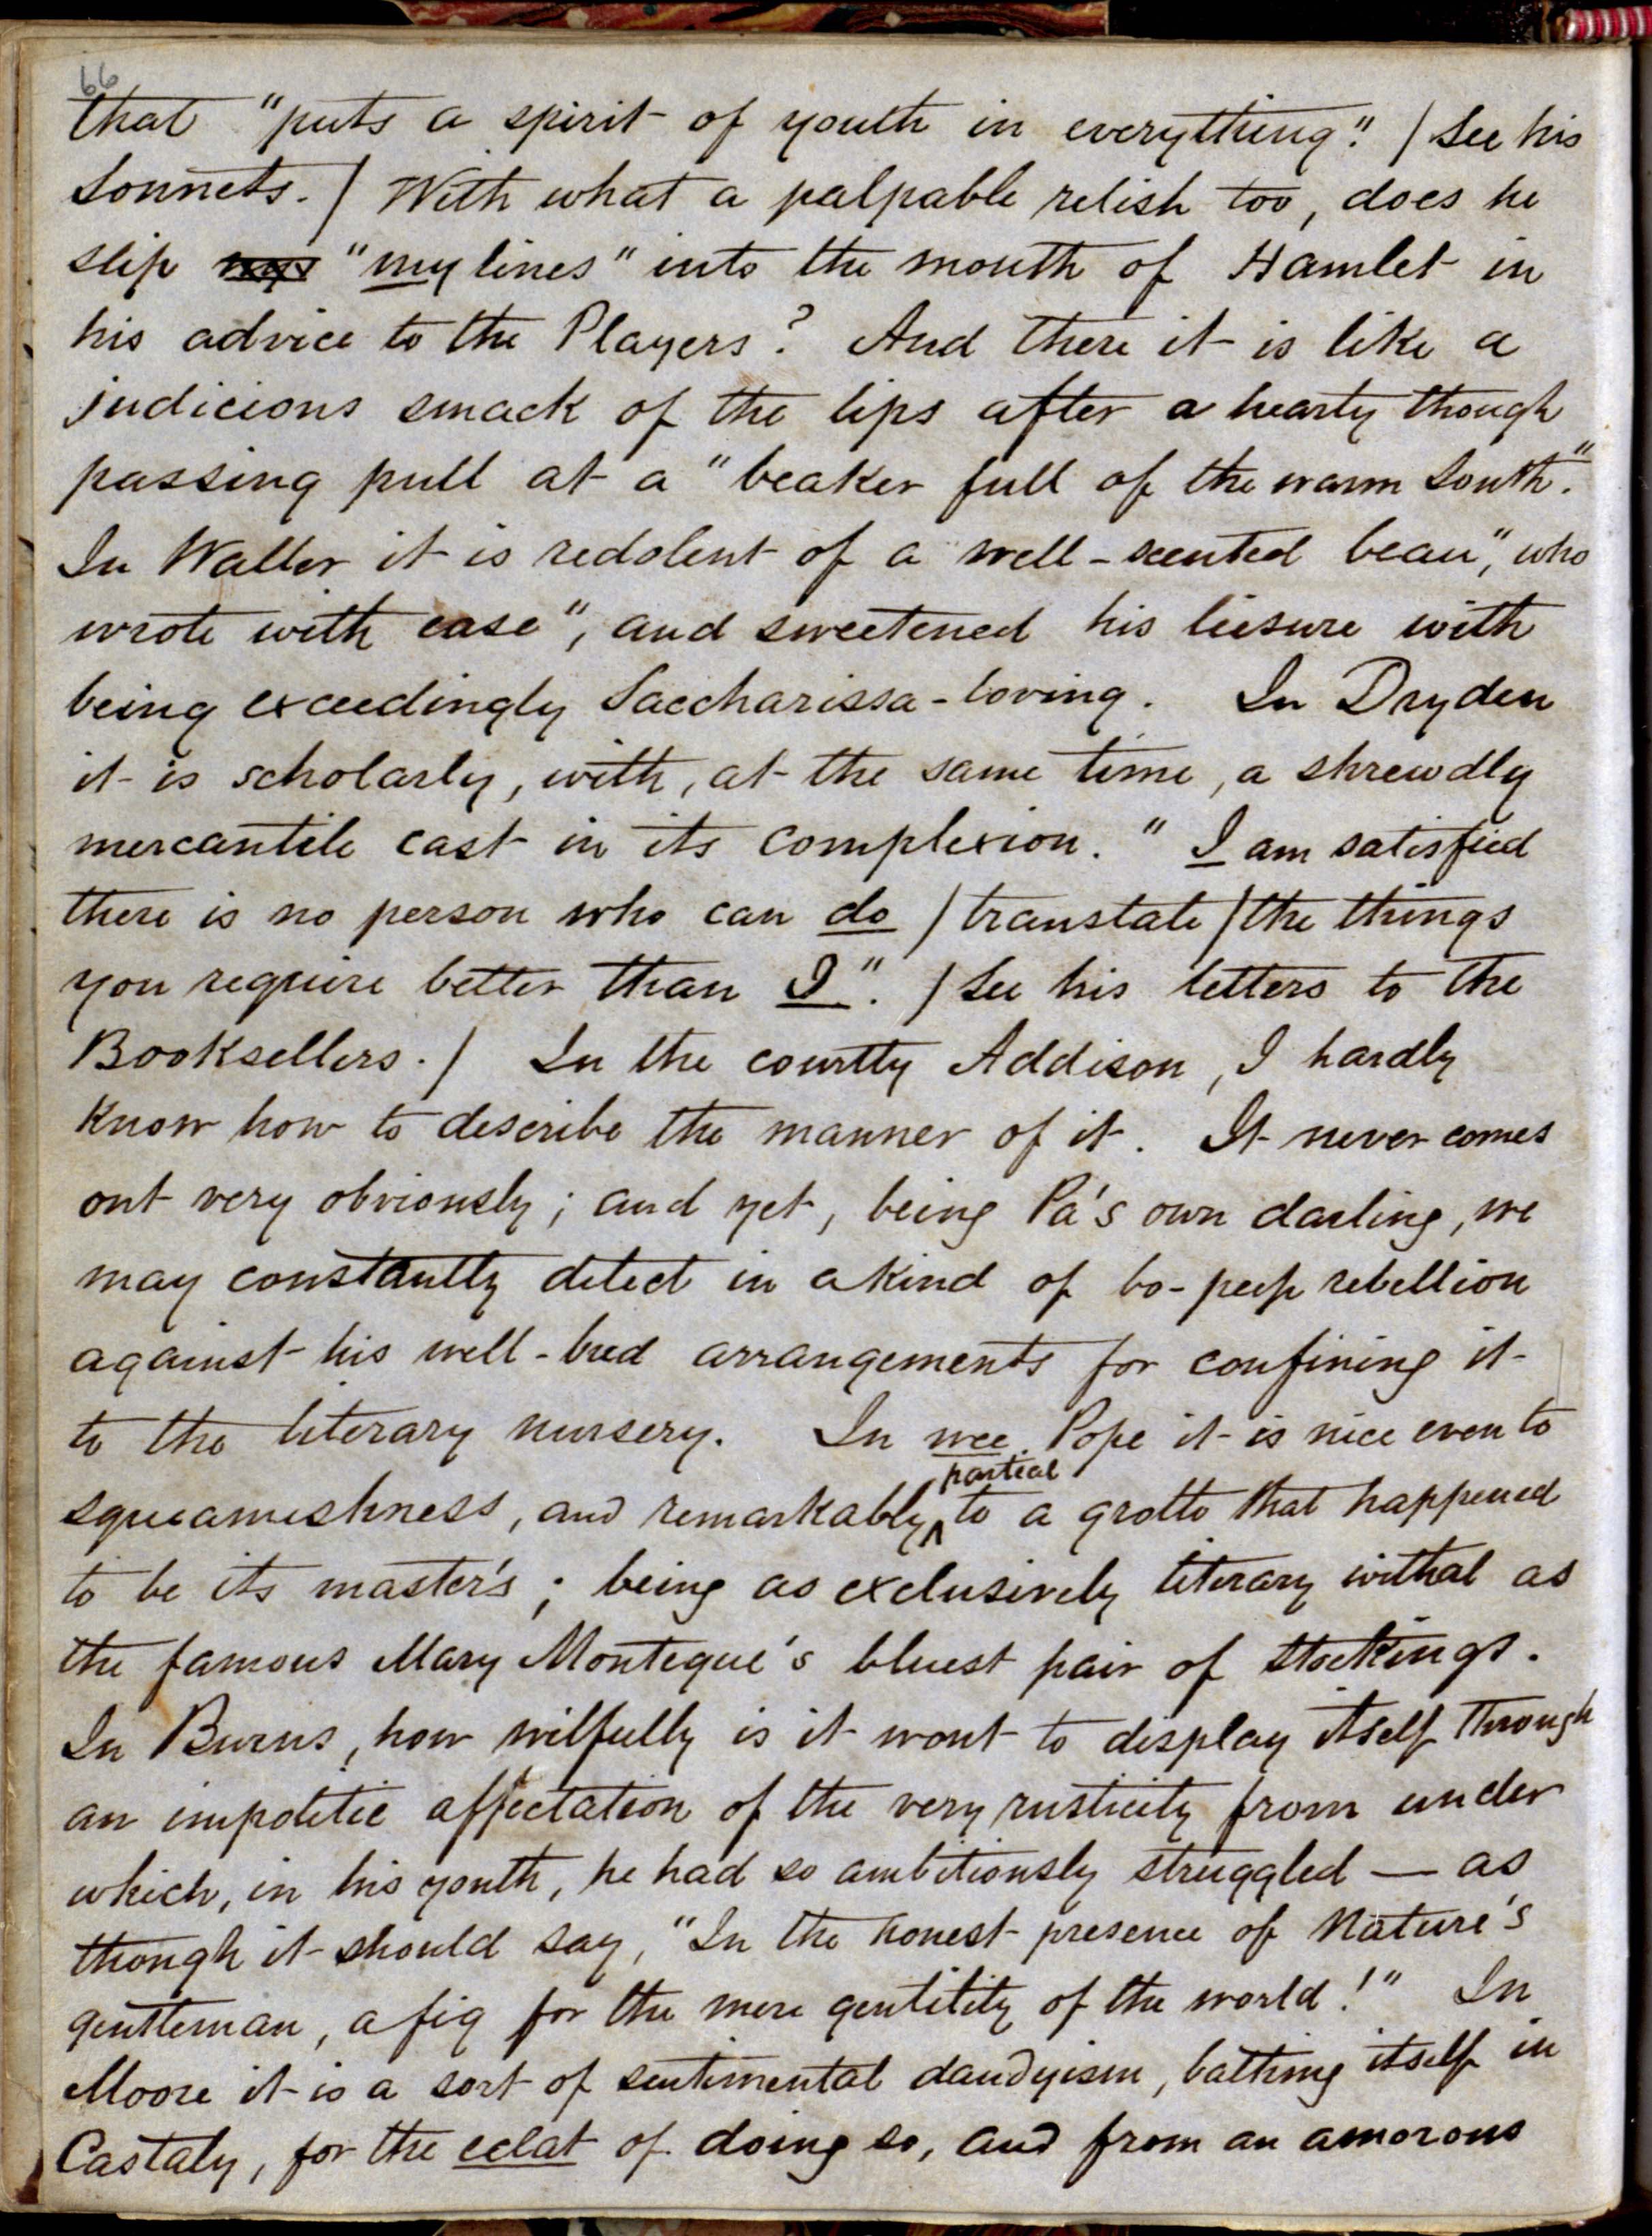 66
that "puts a spirit of youth in everything." / See his
Sonnets. / With what a palpable relish too, does he
slip "my lines" into the mouth of Hamlet in
his advice to the Players? And there it is like a
judicious smack of the lips after a hearty though
passing pull at a "beaker full of the warm South."
In Waller it is redolent of a well-scented beau, "who
wrote with ease", and sweetened his liesure with
being exceedingly Saccharissa-loving. In Dryden
it is scholarly, with, at the same time, a shrewdly
mercantile cast in its complexion. "I am satisfied
there is no person who can do / translate / the things
you require better than I". / See his letters to the
Booksellers. / In the courtly Addison, I hardly
know how to describe the manner of it. It never comes
out very obviously; and yet, being Pa's own darling, we
may constantly detect in a kind of bo-peep rebellion
against his well-bred arrangements for confining it
to the literary nursery. In wee Pope it is nice even to
squeamishness, and remarkably partial to a grotto that happened
to be its master's; being as exclusively literary withal as
the famous Mary Monteque's bluest pair of stockings.
In Burns, how wilfully is it wont to display itself through
an impolitic affectation of the very rusticity from under
which, in his youth, he had so ambitiously struggled — as
though it should say, "In the honest presence of Nature's
gentleman, a fig for the mere gentility of the world!" In
Moore it is a sort of sentimental dandyism, bathing itself in
Castaly, for the eclat of doing so, and from an amorous